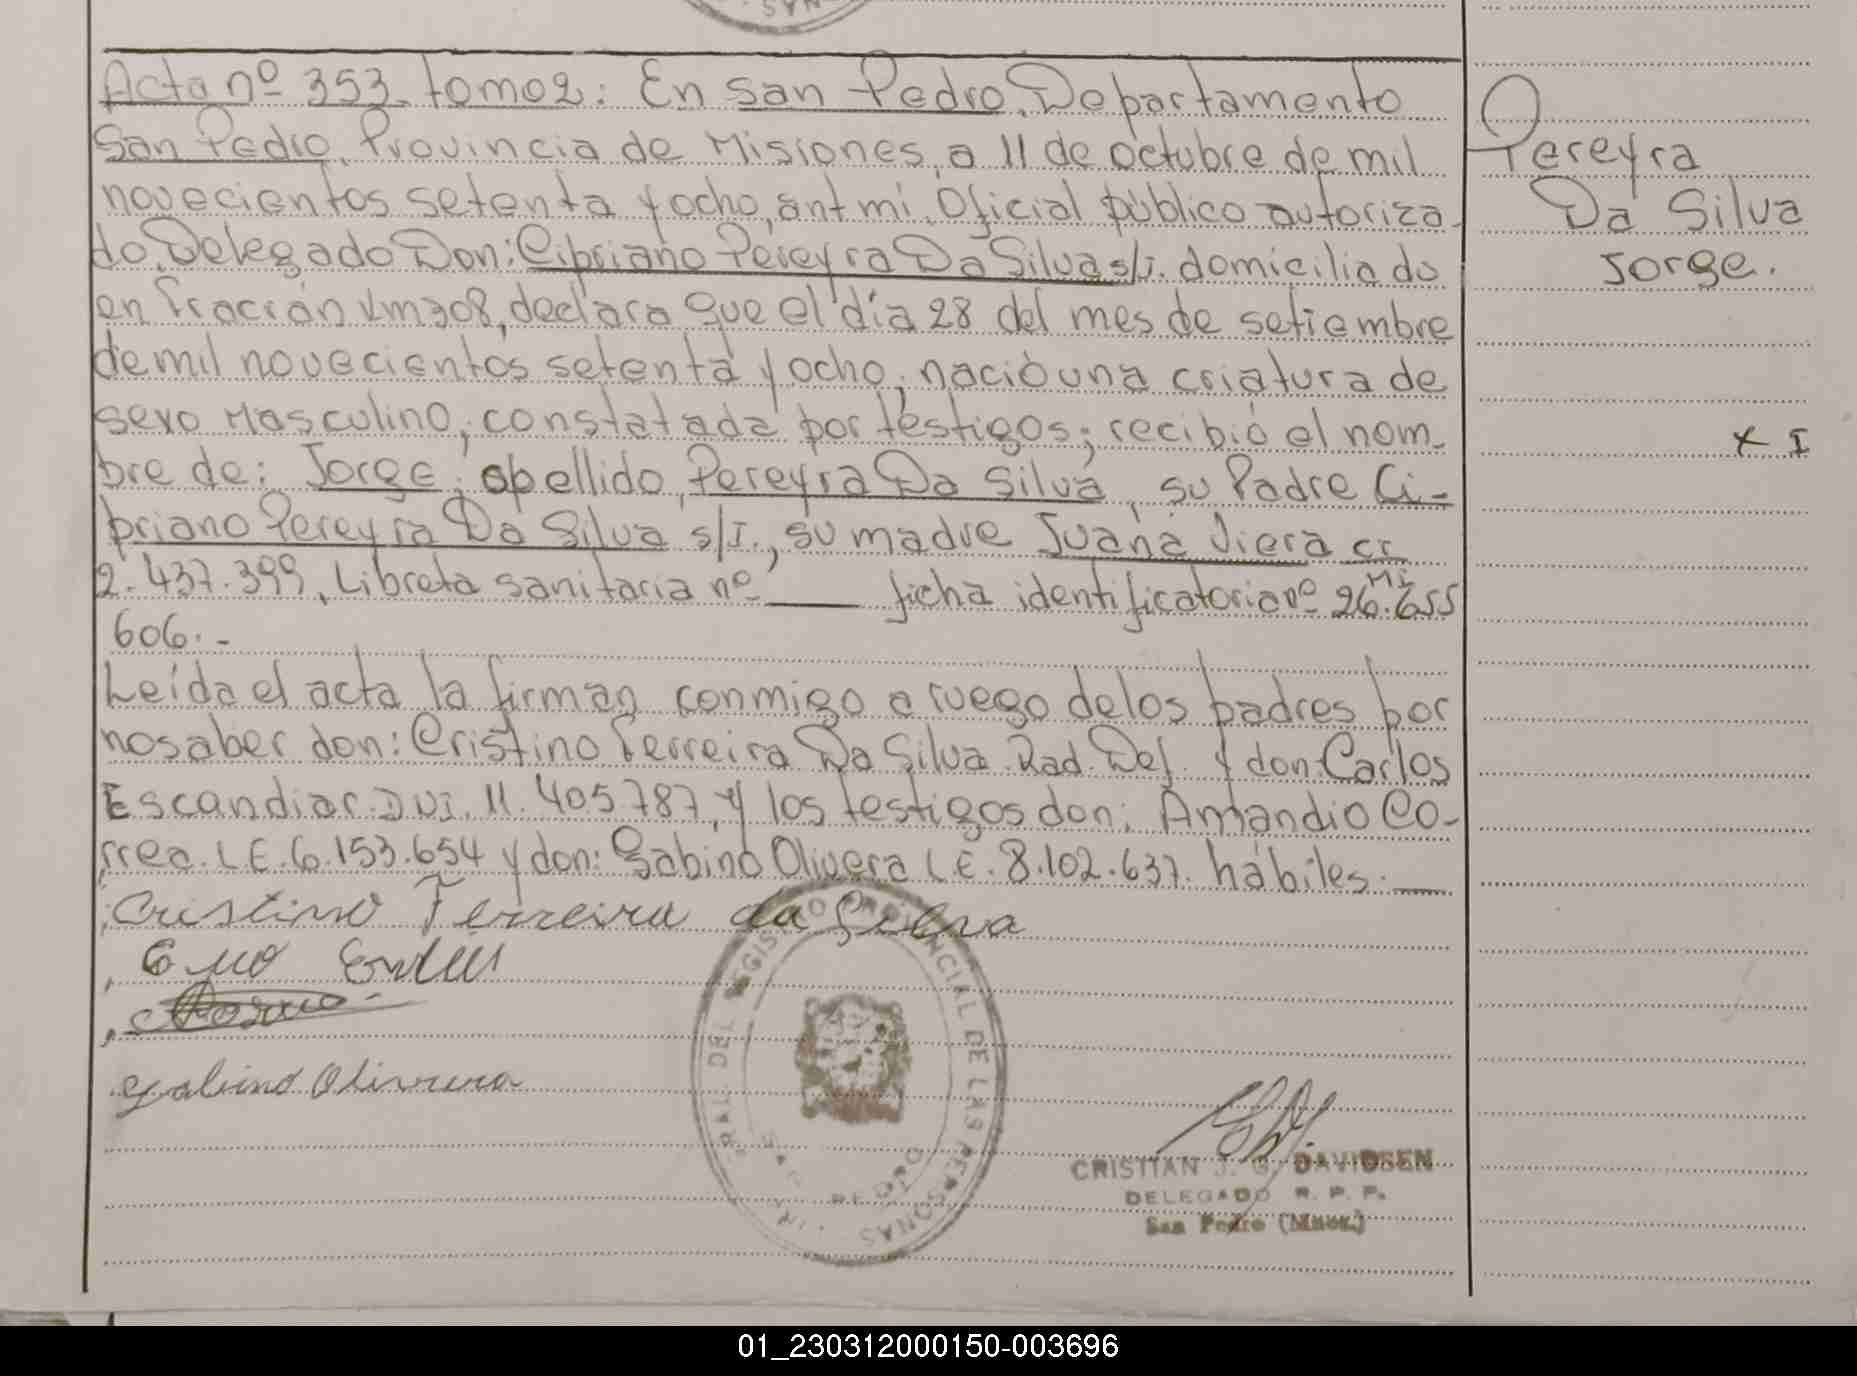 Acta nº 353. tomo 2: En San Pedro, Departamento
San Pedro, Provincia de Misiones, a 11 de octubre de mil
novecientos setenta y ocho, ant mi, Oficial público autoriza-
do, Delegado Don: Cipriano Pereyra Da Silva s/I. domiciliado
en Fracrán km 308, declara que el día 28 del mes de setiembre
de mil novecientos setenta y ocho, nació una criatura de
sexo Masculino, constatada por testigos; recibió el nom-
bre de: Jorge, apellido, Pereyra Da Silva, su Padre Ci-
priano Pereyra Da Silva s/I., su madre Juana Viera cr
2.437.399, Libreta sanitaria nº ___ ficha identificatoria nº MI 26.655
606.-
Leída el acta la firman conmigo a ruego de los padres por
no saber don: Cristino Ferreira Da Silva. Rad. Def. y don Carlos
Escandiar. DUI. 11.405787, y los testigos don: Amandio Co-
rrea. L E. 6.153.654 y don: Gabino Olivera L E. 8.102.637. hábiles.
Cristino Ferreira da Silva
Gabino Olivera
REGISTRO PROVINCIAL DE LAS PERSONAS
SAN PEDRO
CRISTIAN J. G. DAVIDSEN
DELEGADO R. P. P.
San Pedro (Mnes.)
Pereyra
Da Silva
Jorge.
x I
01_230312000150-003696